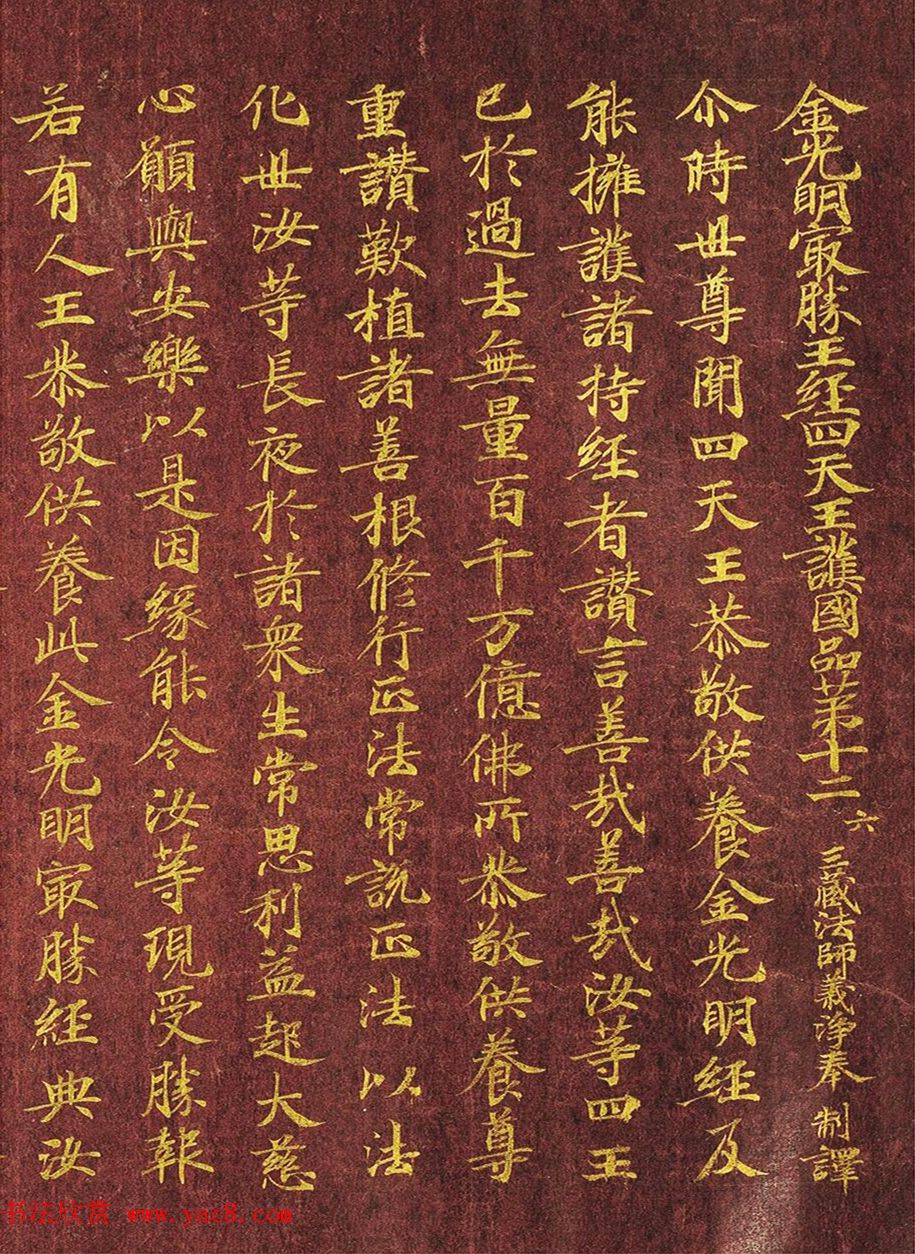 金光明㝡勝王經四天王護國品苐十二 六 三藏法師義淨奉 制譯
尒時世尊聞四天王恭敬供養金光明經及
能擁護諸持經者讚言善哉善哉汝等四王
已於過去無量百千万億佛所恭敬供養尊
重讚歎植諸善根修行正法常說正法以法
化世汝等長夜於諸衆生常思利益起大慈
心願與安樂以是因緣能令汝等現受勝報
若有人王恭敬供養此金光明㝡勝經典汝
书法欣赏 www.yac8.com